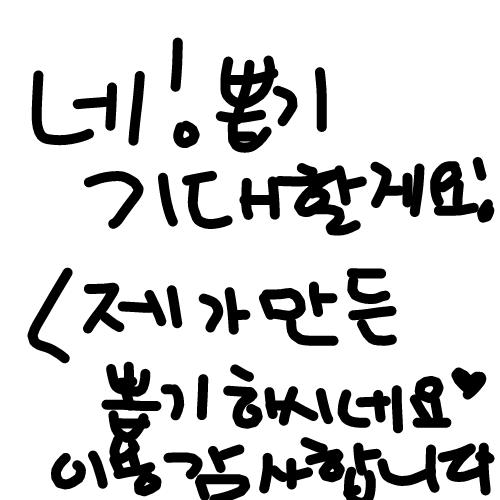 네! 뽑기
기대할게요!
<제가만든
뽑기하시네요♥
이용감사합니다